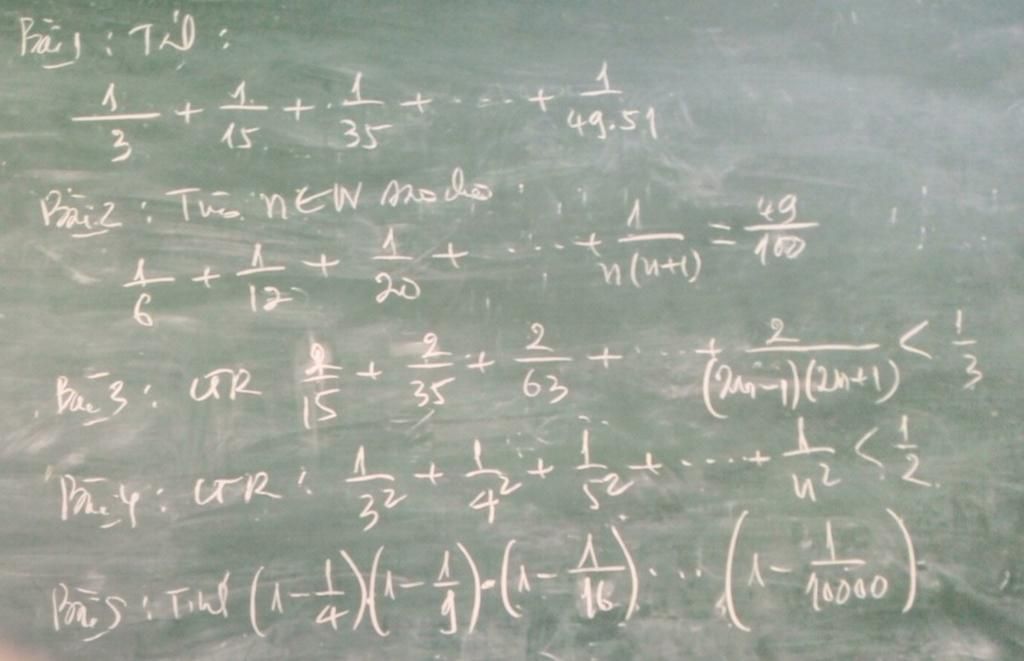 Bài 1 : Tính :
1/3 + 1/15 + 1/35 + ... + 1/49.51
Bài 2 : Tìm n ∈ N sao cho :
1/6 + 1/12 + 1/20 + ... + 1/n(n+1) = 49/100
Bài 3 : CTR 2/15 + 2/35 + 2/63 + ... + 2/(2n-1)(2n+1) < 1/3
Bài 4 : CTR : 1/3² + 1/4² + 1/5² + ... + 1/n² < 1/2
Bài 5 : Tính (1 - 1/4)(1 - 1/9).(1 - 1/16)...(1 - 1/10000)